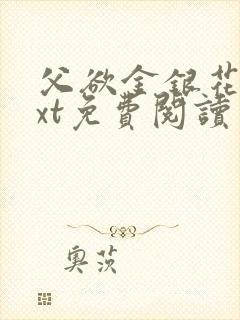 父欲金銀花
xt免費閱讀
奧茨